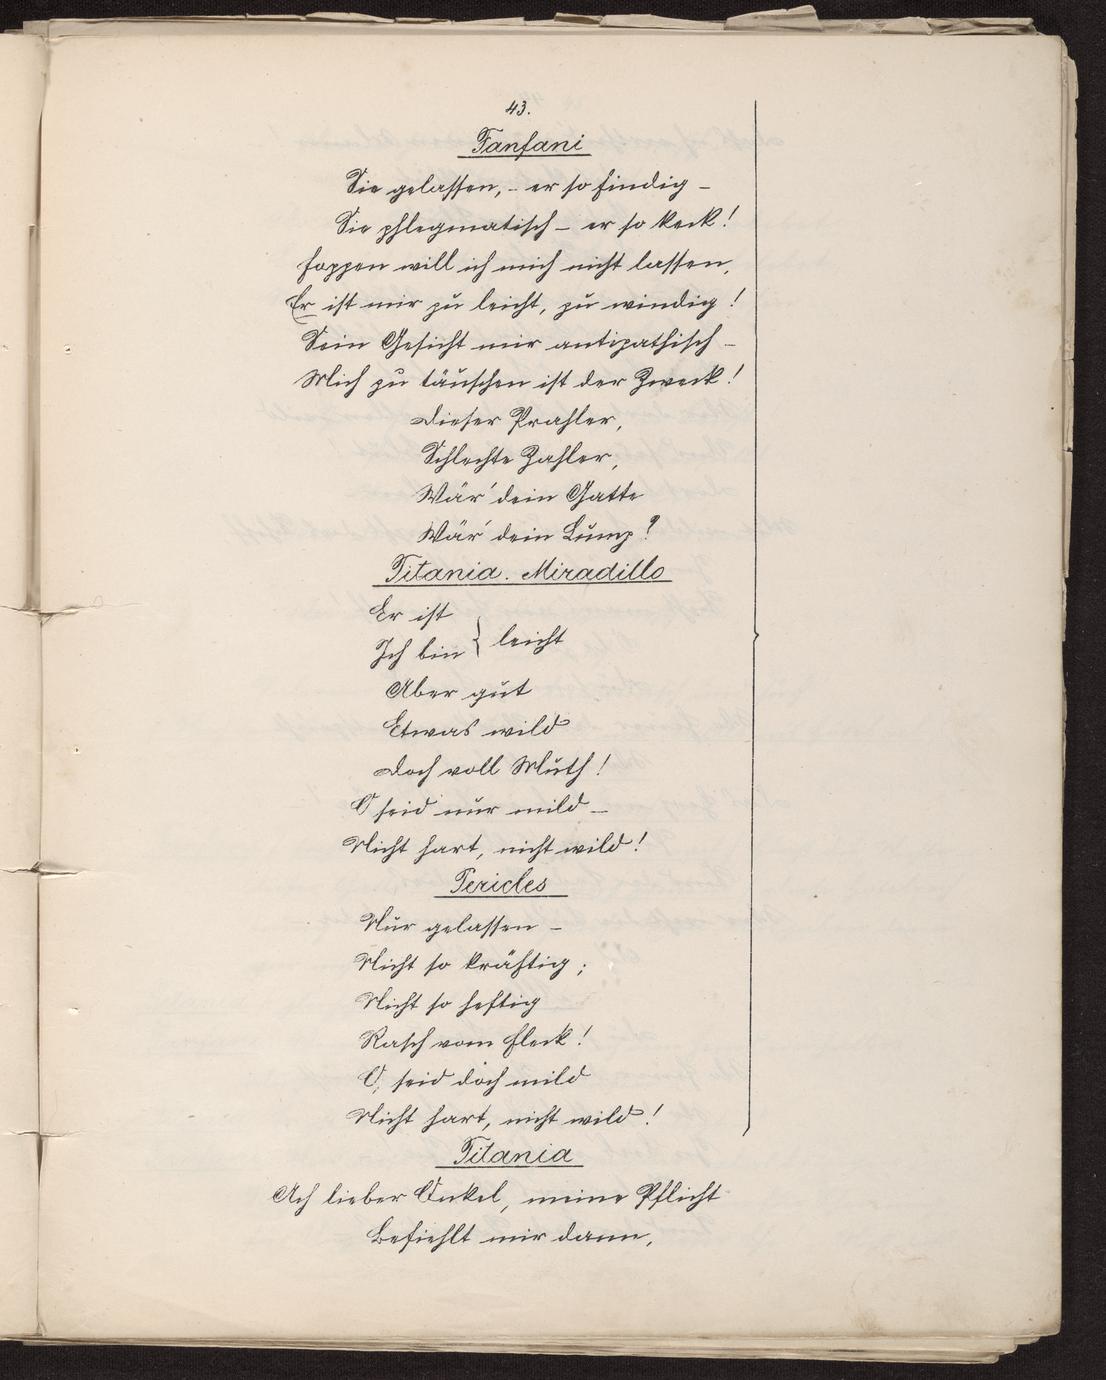 43.
Fanfani
Sie gelassen, – er so findig –
Sie phlegmatisch – er so keck!
Foppen will ich mich nicht lassen,
Er ist mir zu leicht, zu windig!
Sein Gesicht mir antipathisch –
Mich zu täuschen ist der Zweck!
Dieser Prahler,
Schlechte Zahler,
Wär' dein Gatte
Wär' dein Lump?
Titania. Miradillo
Er ist
Ich bin } leicht
Aber gut
Etwas wild
Doch voll Muth!
O seid nur mild –
Nicht hart, nicht wild!
Pericles
Nur gelassen –
Nicht so kräftig;
Nicht so heftig
Rasch vom Fleck!
O, seid doch mild
Nicht hart, nicht wild!
Titania
Ach lieber Onkel, meine Pflicht
Befiehlt mir dann,